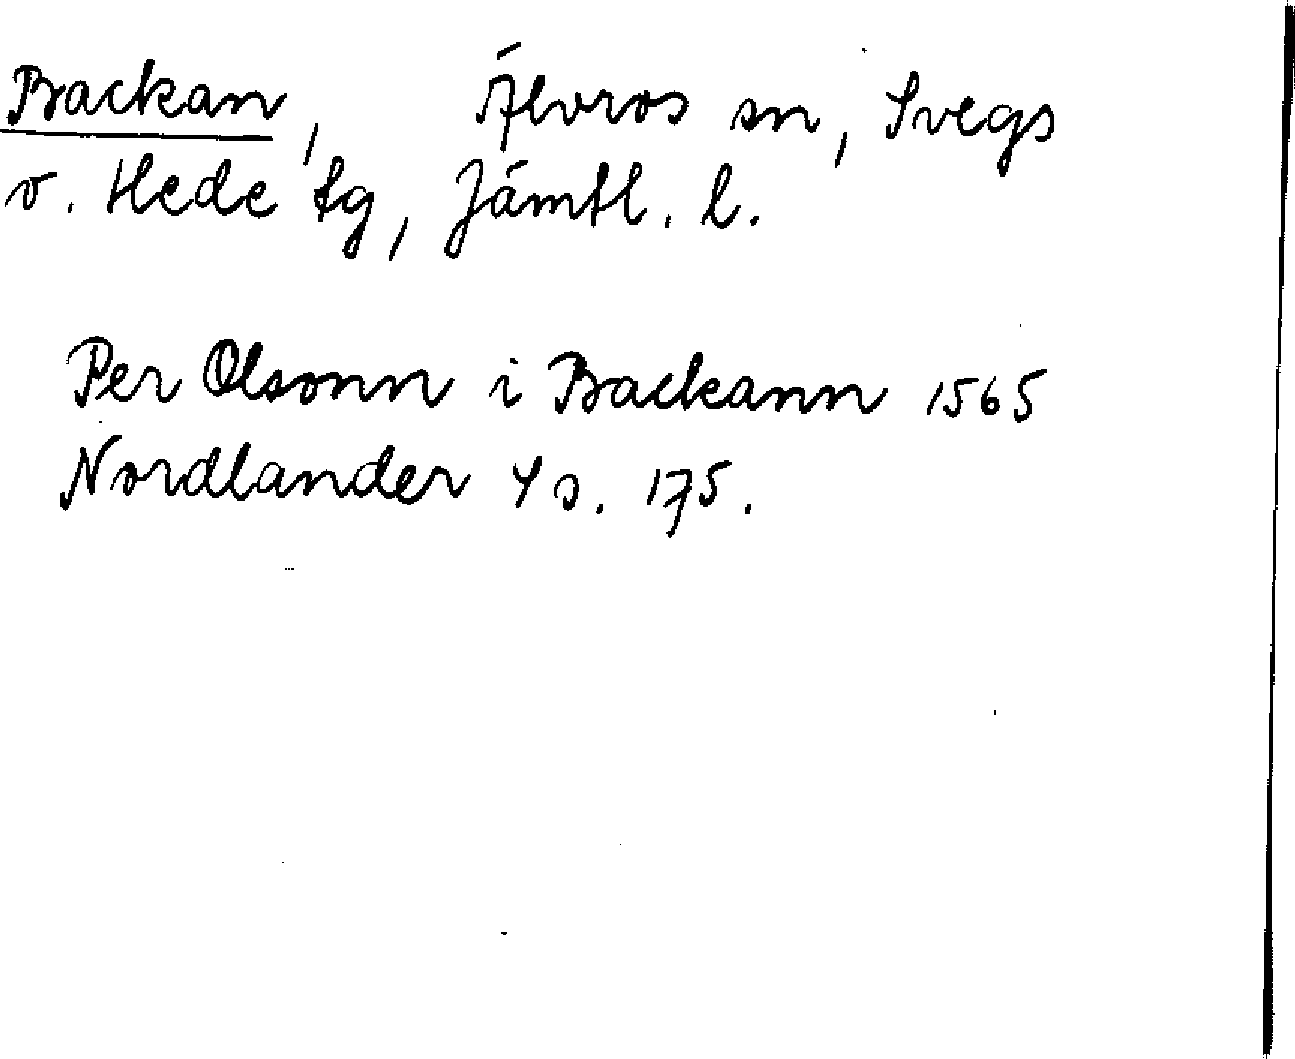 Backan, Älvros sn, Svegs
o. Hede tg, Jämtl. l.
Per Olsonn i Backann 1565
Nordlander 4 s. 175.